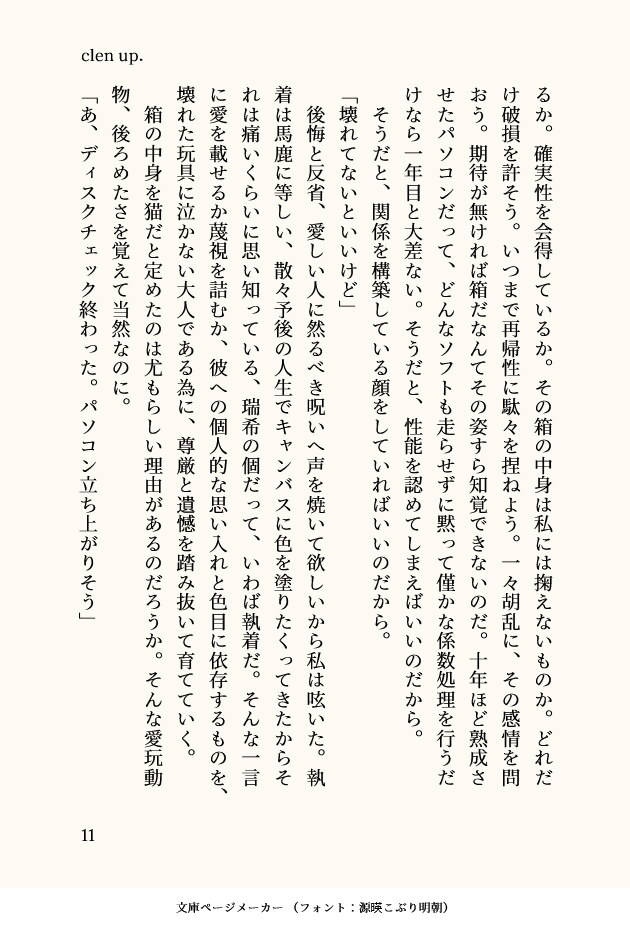 clen up.
るか。確実性を会得しているか。その箱の中身は私には掬えないものか。どれだ
け破損を許そう。いつまで再帰性に駄々を捏ねよう。一々胡乱に、その感情を問
おう。期待が無ければ箱だなんてその姿すら知覚できないのだ。十年ほど熟成さ
せたパソコンだって、どんなソフトも走らせずに黙って僅かな係数処理を行うだ
けなら一年目と大差ない。そうだと、性能を認めてしまえばいいのだから。
そうだと、関係を構築している顔をしていればいいのだから。
「壊れてないといいけど」
後悔と反省、愛しい人に然るべき呪いへ声を焼いて欲しいから私は呟いた。執
着は馬鹿に等しい、散々予後の人生でキャンバスに色を塗りたくってきたからそ
れは痛いくらいに思い知っている、瑞希の個だって、いわば執着だ。そんな一言
に愛を載せるか蔑視を詰むか、彼への個人的な思い入れと色目に依存するものを、
壊れた玩具に泣かない大人である為に、尊厳と遺憾を踏み抜いて育てていく。
箱の中身を猫だと定めたのは尤もらしい理由があるのだろうか。そんな愛玩動
物、後ろめたさを覚えて当然なのに。
「あ、ディスクチェック終わった。パソコン立ち上がりそう」
11
文庫ページメーカー（フォント：源暎こぶり明朝）